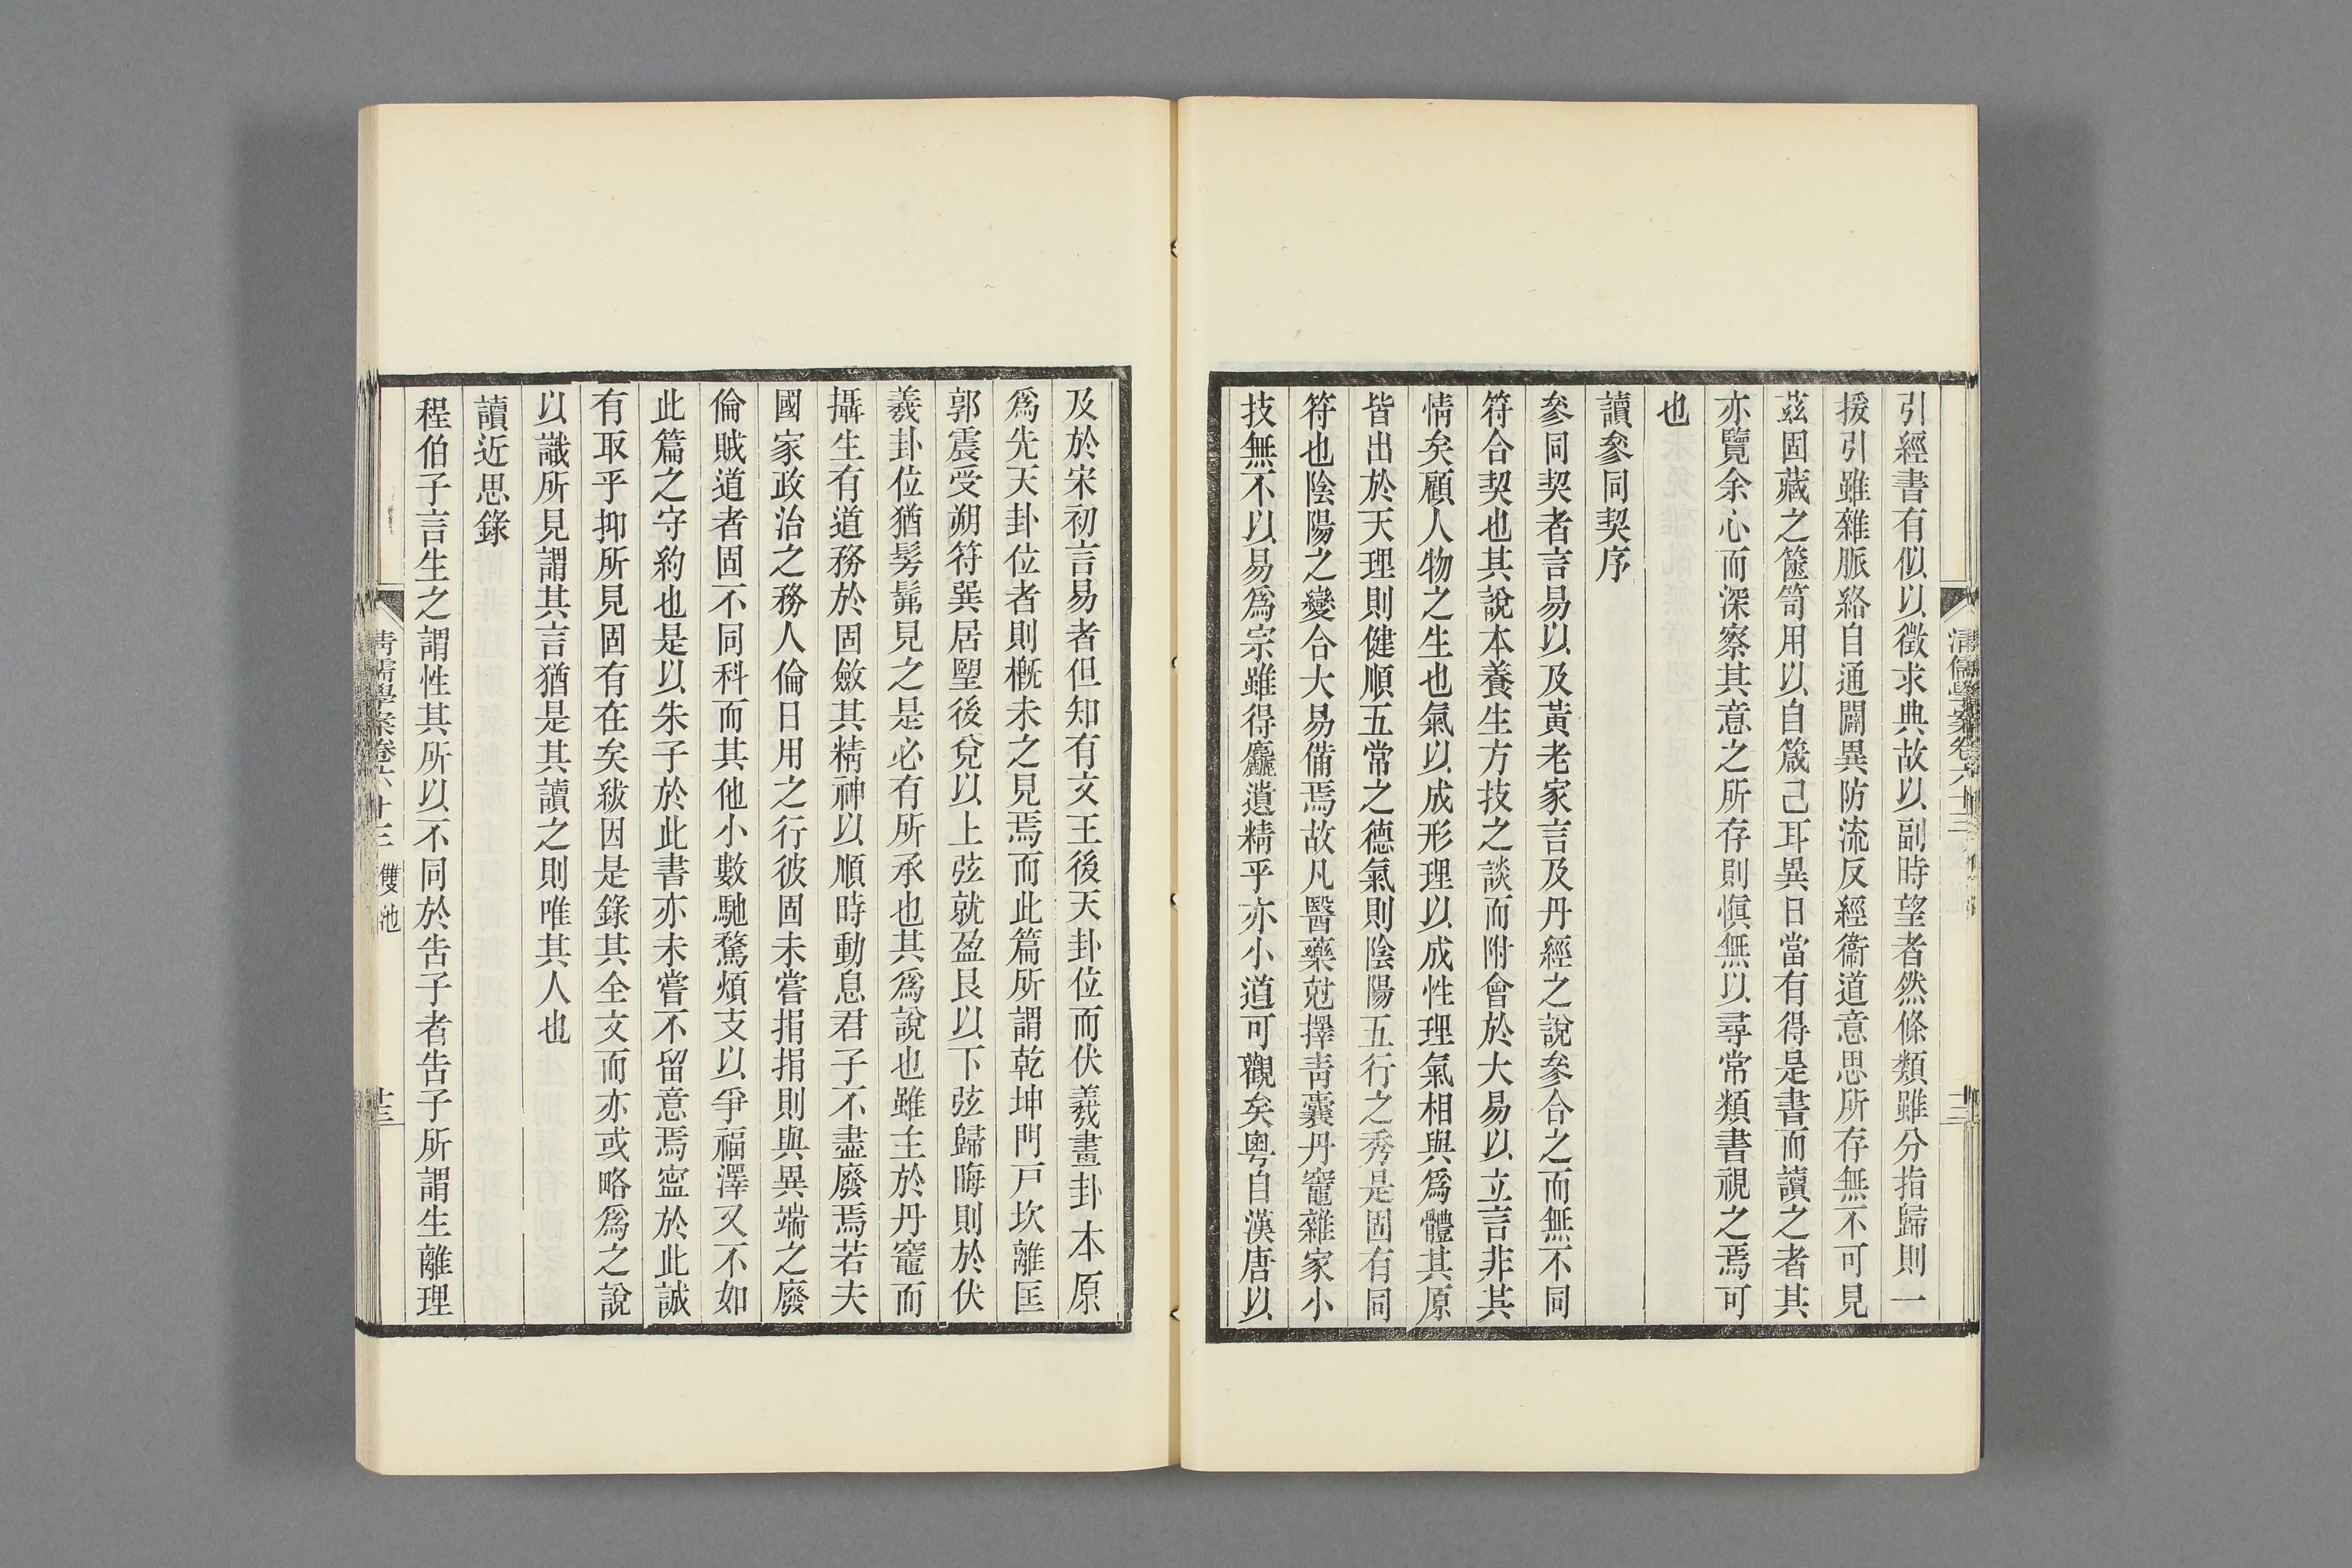 引經書有似以徵求典故以副時望者然條類雖分指歸則一
援引雖雜脈絡自通闢異防流反經衞道意思所存無不可見
茲固藏之篋笥用以自箴己耳異日當有得是書而讀之者其
亦覽余心而深察其意之所存則愼無以尋常類書視之焉可
也
讀參同契序
參同契者言易以及黃老家言及丹經之說參合之而無不同
符合契也其說本養生方技之談而附會於大易以立言非其
情矣顧人物之生也氣以成形理以成性理氣相與爲體其原
皆出於天理則健順五常之德氣則陰陽五行之秀是固有同
符也陰陽之變合大易備焉故凡醫藥尅擇靑囊丹竈雜家小
技無不以易爲宗雖得麤遺精乎亦小道可觀矣粵自漢唐以
清儒學案卷六十三
十二
及於宋初言易者但知有文王後天卦位而伏羲畫卦本原
爲先天卦位者則概未之見焉而此篇所謂乾坤門戸坎離匡
郭震受朔符巽居朢後兌以上弦就盈艮以下弦歸晦則於伏
羲卦位猶髣髴見之是必有所承也其爲說也雖主於丹竈而
攝生有道務於固斂其精神以順時動息君子不盡廢焉若夫
國家政治之務人倫日用之行彼固未嘗捐捐則與異端之廢
倫賊道者固不同科而其他小數馳騖煩支以爭福澤又不如
此篇之守約也是以朱子於此書亦未嘗不留意焉寍於此誠
有取乎抑所見固有在矣紱因是錄其全文而亦或略爲之說
以讖所見謂其言猶是其讀之則唯其人也
讀近思錄
程伯子言生之謂性其所以不同於告子者告子所謂生離理
清儒學案卷六十三 雙池
十三